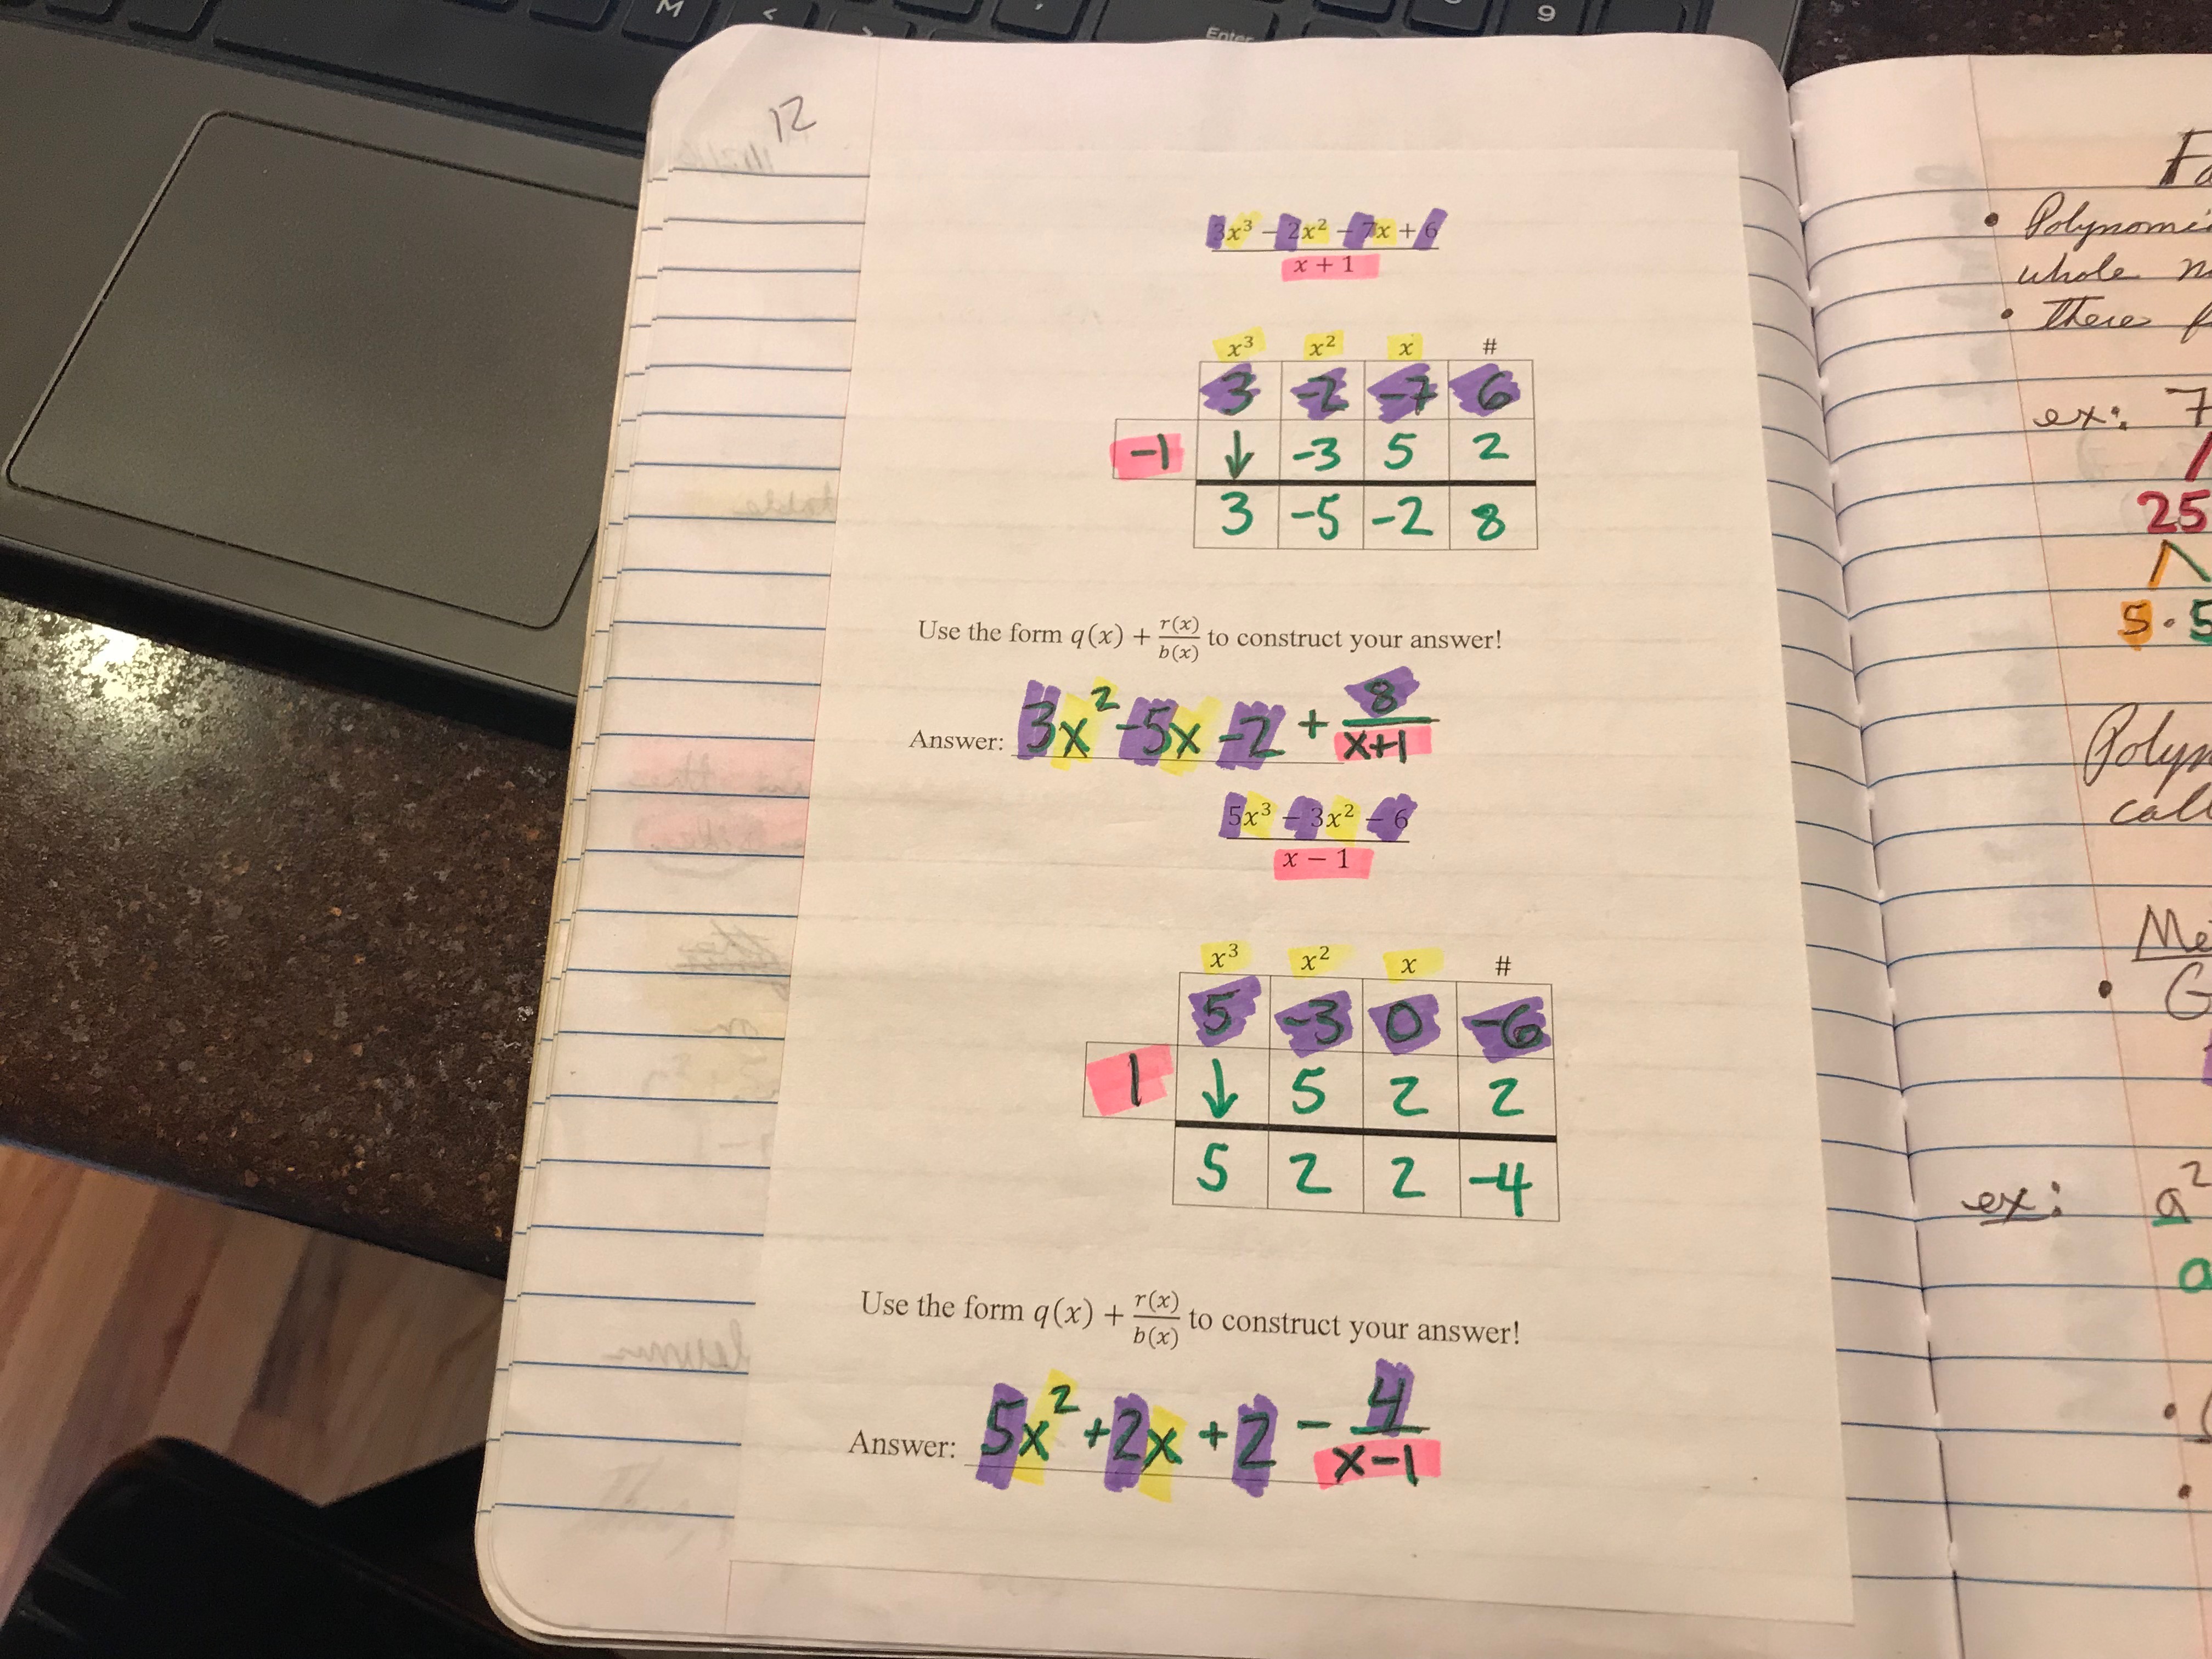 12
3x³ − 2x² − 7x + 6
x + 1
x³ x² x #
3 -2 -7 6
-1 ↓ -3 5 2
3 -5 -2 8
Use the form q(x) + r(x)/b(x) to construct your answer!
Answer: 3x² -5x -2 + 8/x+1
5x³ − 3x² − 6
x − 1
x³ x² x #
5 -3 0 -6
1 ↓ 5 2 2
5 2 2 -4
Use the form q(x) + r(x)/b(x) to construct your answer!
Answer: 5x² +2x +2 - 4/x-1
• Polynomi
whole
• There
ex: 7
25
5·5
Polyn
call
• Me
ex: a²
a
M
<
Enter
6